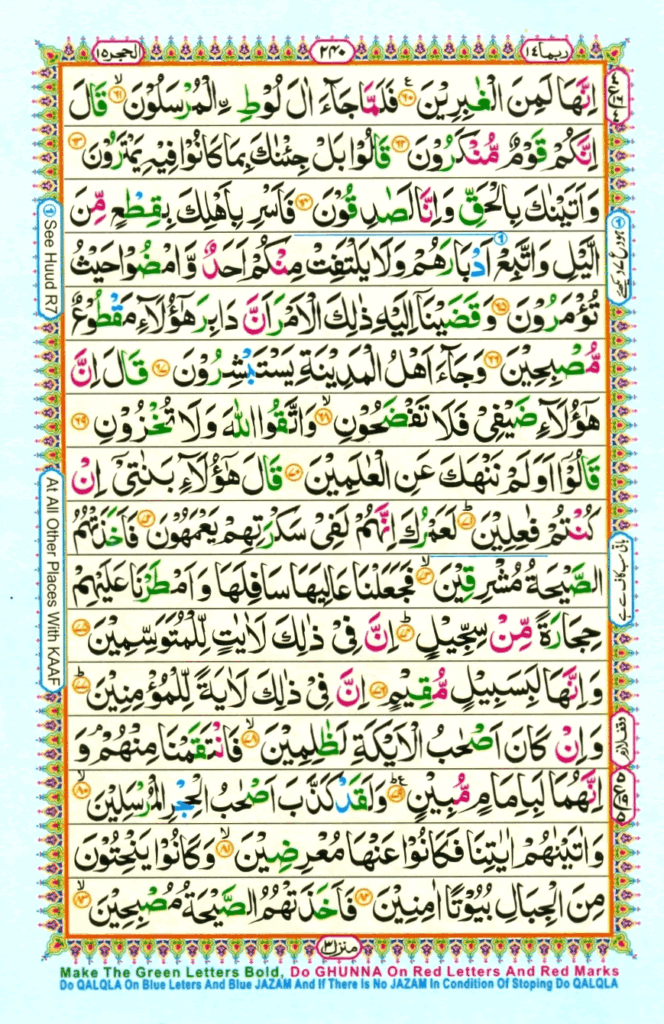 ربما ١٤
٢٤٠
الحجر ١٥
اِنَّهَا لَمِنَ الْغٰبِرِيْنَ ۝٦٠ فَلَمَّا جَآءَ اٰلَ لُوْطِ ِۨالْمُرْسَلُوْنَ ۝٦١ قَالَ
اِنَّكُمْ قَوْمٌ مُّنْكَرُوْنَ ۝٦٢ قَالُوْا بَلْ جِئْنٰكَ بِمَا كَانُوْا فِيْهِ يَمْتَرُوْنَ ۝٦٣
وَاَتَيْنٰكَ بِالْحَقِّ وَاِنَّا لَصٰدِقُوْنَ ۝٦٤ فَاَسْرِ بِاَهْلِكَ بِقِطْعٍ مِّنَ
الَّيْلِ وَاتَّبِعْ اَدْبَارَهُمْ وَلَا يَلْتَفِتْ مِنْكُمْ اَحَدٌ وَّامْضُوْا حَيْثُ
تُؤْمَرُوْنَ ۝٦٥ وَقَضَيْنَآ اِلَيْهِ ذٰلِكَ الْاَمْرَ اَنَّ دَابِرَ هٰٓؤُلَآءِ مَقْطُوْعٌ
مُّصْبِحِيْنَ ۝٦٦ وَجَآءَ اَهْلُ الْمَدِيْنَةِ يَسْتَبْشِرُوْنَ ۝٦٧ قَالَ اِنَّ
هٰٓؤُلَآءِ ضَيْفِيْ فَلَا تَفْضَحُوْنِ ۝٦٨ وَاتَّقُوا اللّٰهَ وَلَا تُخْزُوْنِ ۝٦٩
قَالُوْٓا اَوَلَمْ نَنْهَكَ عَنِ الْعٰلَمِيْنَ ۝٧٠ قَالَ هٰٓؤُلَآءِ بَنٰتِيْٓ اِنْ
كُنْتُمْ فٰعِلِيْنَ ۝٧١ لَعَمْرُكَ اِنَّهُمْ لَفِيْ سَكْرَتِهِمْ يَعْمَهُوْنَ ۝٧٢ فَاَخَذَتْهُمُ
الصَّيْحَةُ مُشْرِقِيْنَ ۝٧٣ فَجَعَلْنَا عَالِيَهَا سَافِلَهَا وَاَمْطَرْنَا عَلَيْهِمْ
حِجَارَةً مِّنْ سِجِّيْلٍ ۝٧٤ اِنَّ فِيْ ذٰلِكَ لَاٰيٰتٍ لِّلْمُتَوَسِّمِيْنَ ۝٧٥
وَاِنَّهَا لَبِسَبِيْلٍ مُّقِيْمٍ ۝٧٦ اِنَّ فِيْ ذٰلِكَ لَاٰيَةً لِّلْمُؤْمِنِيْنَ ۝٧٧
وَاِنْ كَانَ اَصْحٰبُ الْاَيْكَةِ لَظٰلِمِيْنَ ۝٧٨ فَانْتَقَمْنَا مِنْهُمْ وَ
اِنَّهُمَا لَبِاِمَامٍ مُّبِيْنٍ ۝٧٩ وَلَقَدْ كَذَّبَ اَصْحٰبُ الْحِجْرِ الْمُرْسَلِيْنَ ۝٨٠
وَاٰتَيْنٰهُمْ اٰيٰتِنَا فَكَانُوْا عَنْهَا مُعْرِضِيْنَ ۝٨١ وَكَانُوْا يَنْحِتُوْنَ
مِنَ الْجِبَالِ بُيُوْتًا اٰمِنِيْنَ ۝٨٢ فَاَخَذَتْهُمُ الصَّيْحَةُ مُصْبِحِيْنَ ۝٨٣
① See Huud R7
At All Other Places With KAAF
وقف لازم
منزل ٣
Make The Green Letters Bold, Do GHUNNA On Red Letters And Red Marks
Do QALQLA On Blue Leters And Blue JAZAM And If There Is No JAZAM In Condition Of Stoping Do QALQLA